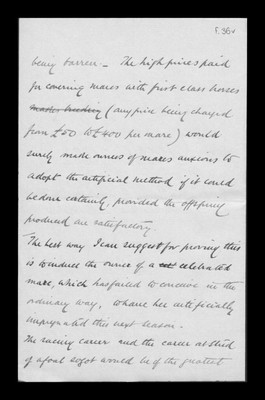 F.36v
being barren — The high prices paid
for covering mares with first class horses
(any price being charged
from £50 to £400 per mare) would
surely make owners of mares anxious to
adopt the artificial method if it could
be done certainly, provided the offspring
produced are satisfactory.
The best way I can suggest for proving this
is to induce the owner of a celebrated
mare, which has failed to conceive in the
ordinary way, to have her artificially
impregnated this next season.
The racing career and the career at stud
of a foal so got would be of the greatest